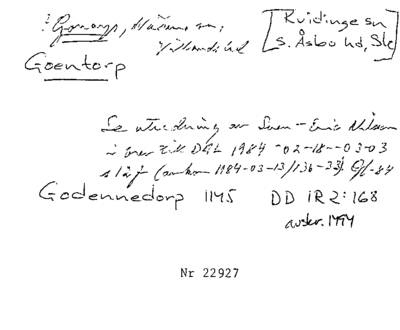 ? Gomorp, Mariems sn,
Vättlands hd
[Kvidinge sn
S. Åsbo hd, Sk]
Goentorp
Se utredning av Sven-Eric Nilsson
i brev till DAL 1984-02-18--03-03
(ankom 1984-03-13/136-33).
Godennedorp 1145 DD 1R2:168
avskr. 1494
Nr 22927